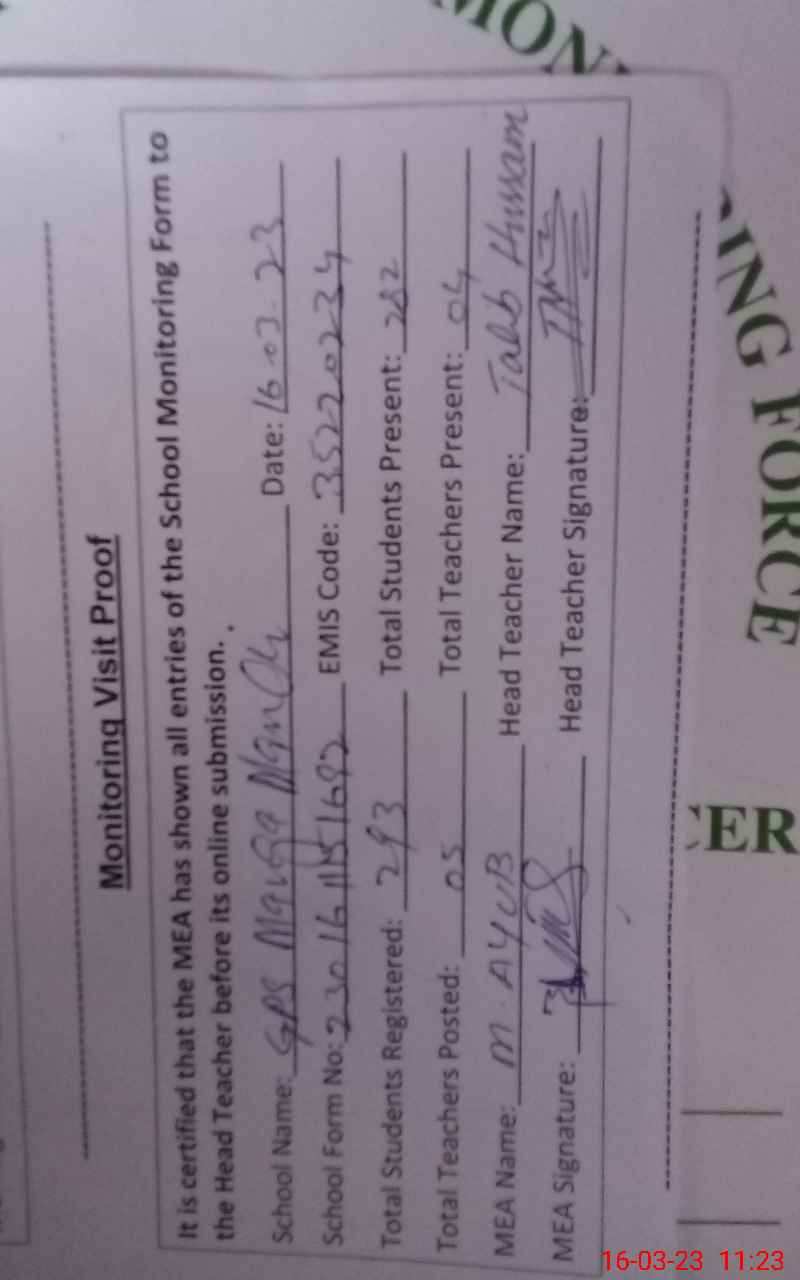 Monitoring Visit Proof
It is certified that the MEA has shown all entries of the School Monitoring Form to
the Head Teacher before its online submission.
School Name: GPS Date: 16-03-23
School Form No: EMIS Code: 35220234
Total Students Registered: 293 Total Students Present: 282
Total Teachers Posted: 05 Total Teachers Present: 04
MEA Name: M. AYUB Head Teacher Name: Talib Hussain
MEA Signature: Head Teacher Signature:
FORCE
16-03-23 11:23